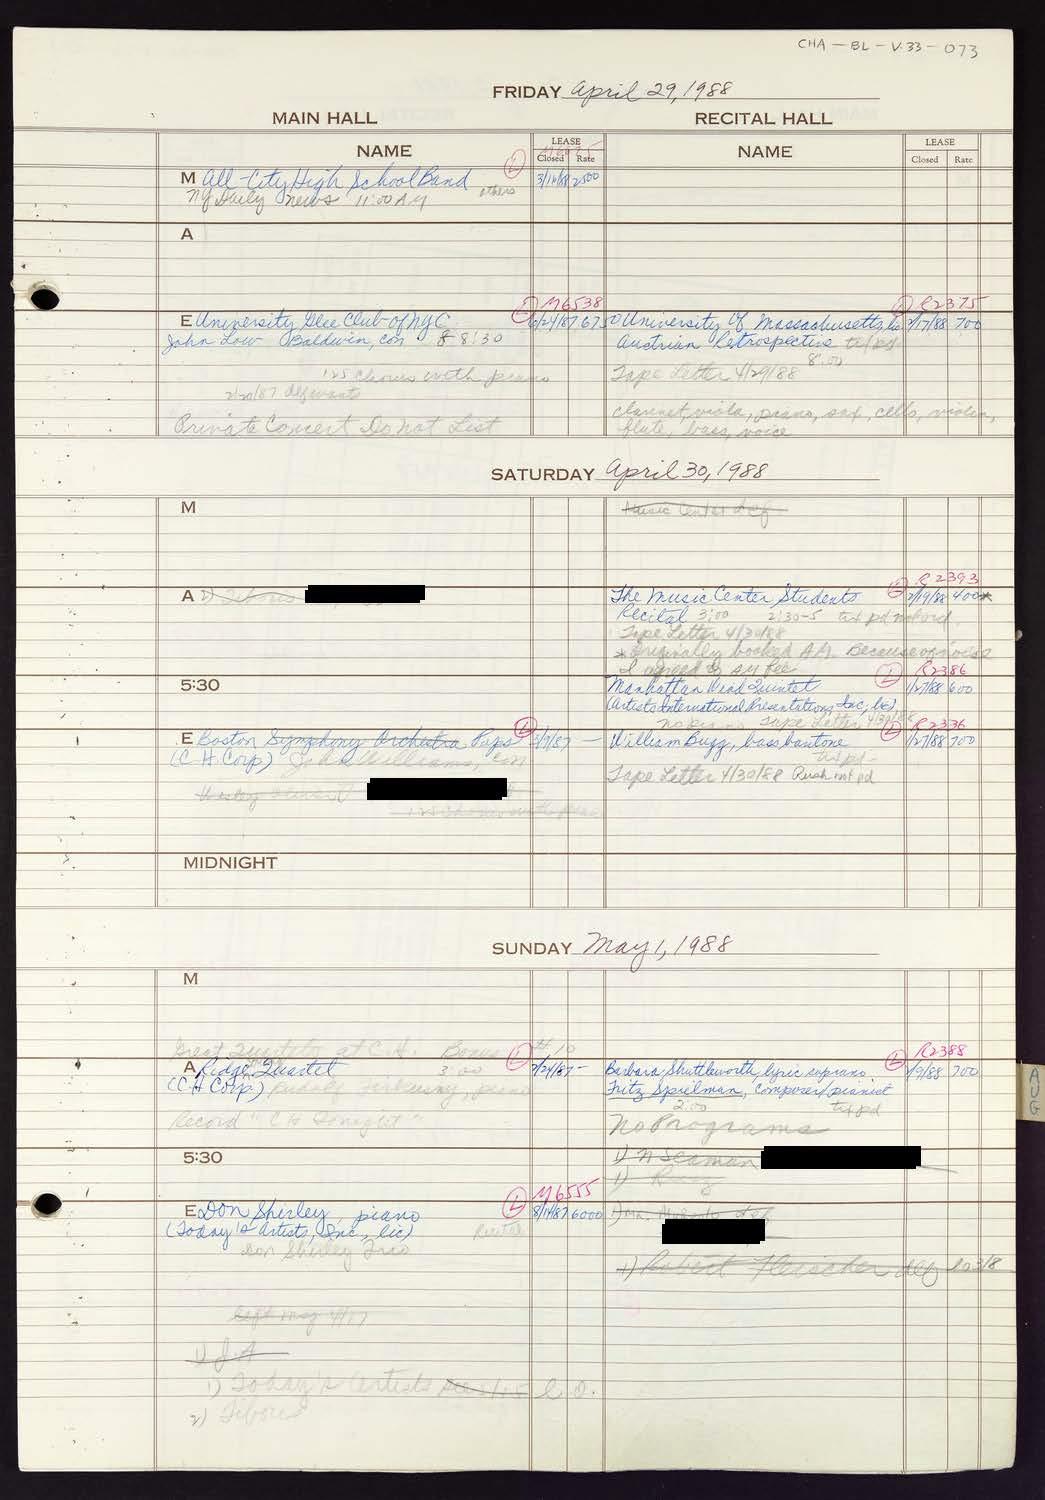 CHA - BL - V.33 - 073
FRIDAY April 29, 1988
MAIN HALL RECITAL HALL
NAME LEASE Closed Rate NAME LEASE Closed Rate
M All-City High School Band others L 3/16/88 2500
NY Daily News 11:00 AM
A
E University Glee Club of NYC L M6538 6/24/87 6750
John Low Baldwin, con 8:30
125 Chorus with piano
Private Concert Do Not List
University of Massachusetts, lic L R2375 1/7/88 700
Austrian Retrospective txt pd
8:00
Tape Letter 4/29/88
clarinet, viola, piano, sax, cello, violin,
flute, bass, voice
SATURDAY April 30, 1988
M Music Center def
A
The Music Center Students L R2393 2/19/88 400*
Recital 3:00 2:30-5 txt pd not ord.
Tape Letter 4/30/88
* Originally booked AM. Because of noise
I agreed to AM fee
5:30
Manhattan Wind Quintet L R2386 1/27/88 600
(Artists International Presentations, Inc., lic)
no piano Tape Letter 4/30/88
E Boston Symphony Orchestra Pops L 3/7/87 —
(C.H. Corp) John Williams, con
125 Chorus with piano
William Bugg, bass baritone L R2336 1/27/88 700
txt pd
Tape Letter 4/30/88 Rush not pd
MIDNIGHT
SUNDAY May 1, 1988
M
Great Quartets at C.H. Bonus #10
A Ridge Quartet 3:00 L 2/24/87 -
(C.H. Corp) Rudolf Firkusny, piano
Record "C H Tonight"
Barbara Shuttleworth, lyric soprano L R2388 2/9/88 700
Fritz Spielman, composer/pianist
2:00 txt pd
No Programs
5:30
1) N Seaman
E Don Shirley, piano L M6555 8/14/87 6000
(Today's Artists, Inc., lic) Recital
Don Shirley Trio
1) Robert Fleischer def
1) J.A
1) Today's Artists
2) Tibor
AUG